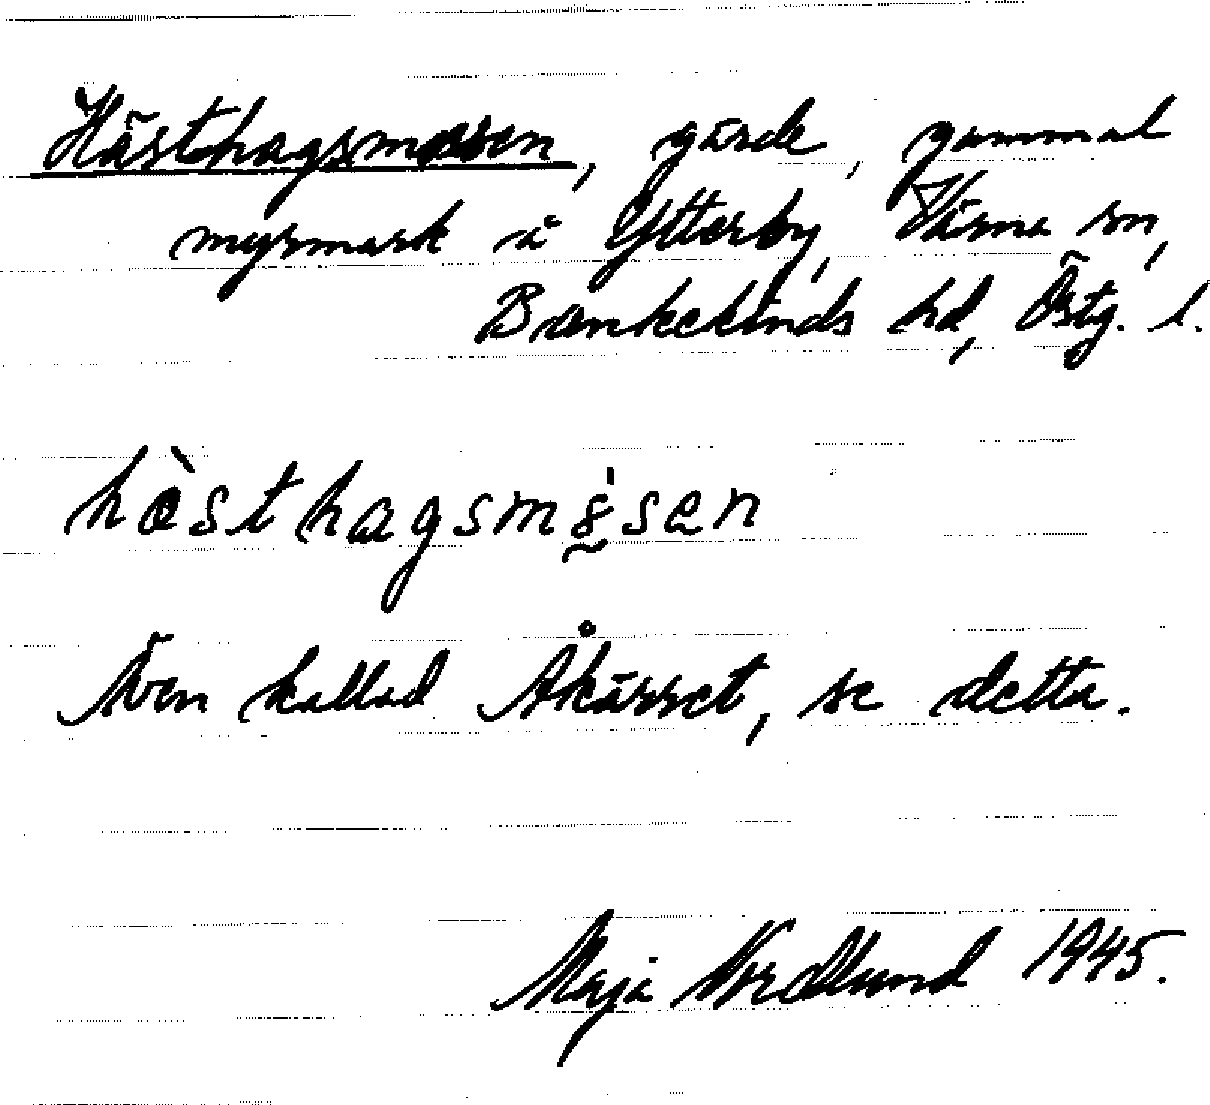 Hästhagsmosen, gärde, gammal
myrmark å Ytterby, Värna sn,
Bankekinds hd, Östg. l.
hästhagsmo̰sen
Även kallad Åkärret, se detta.
Maja Nordlund 1945.